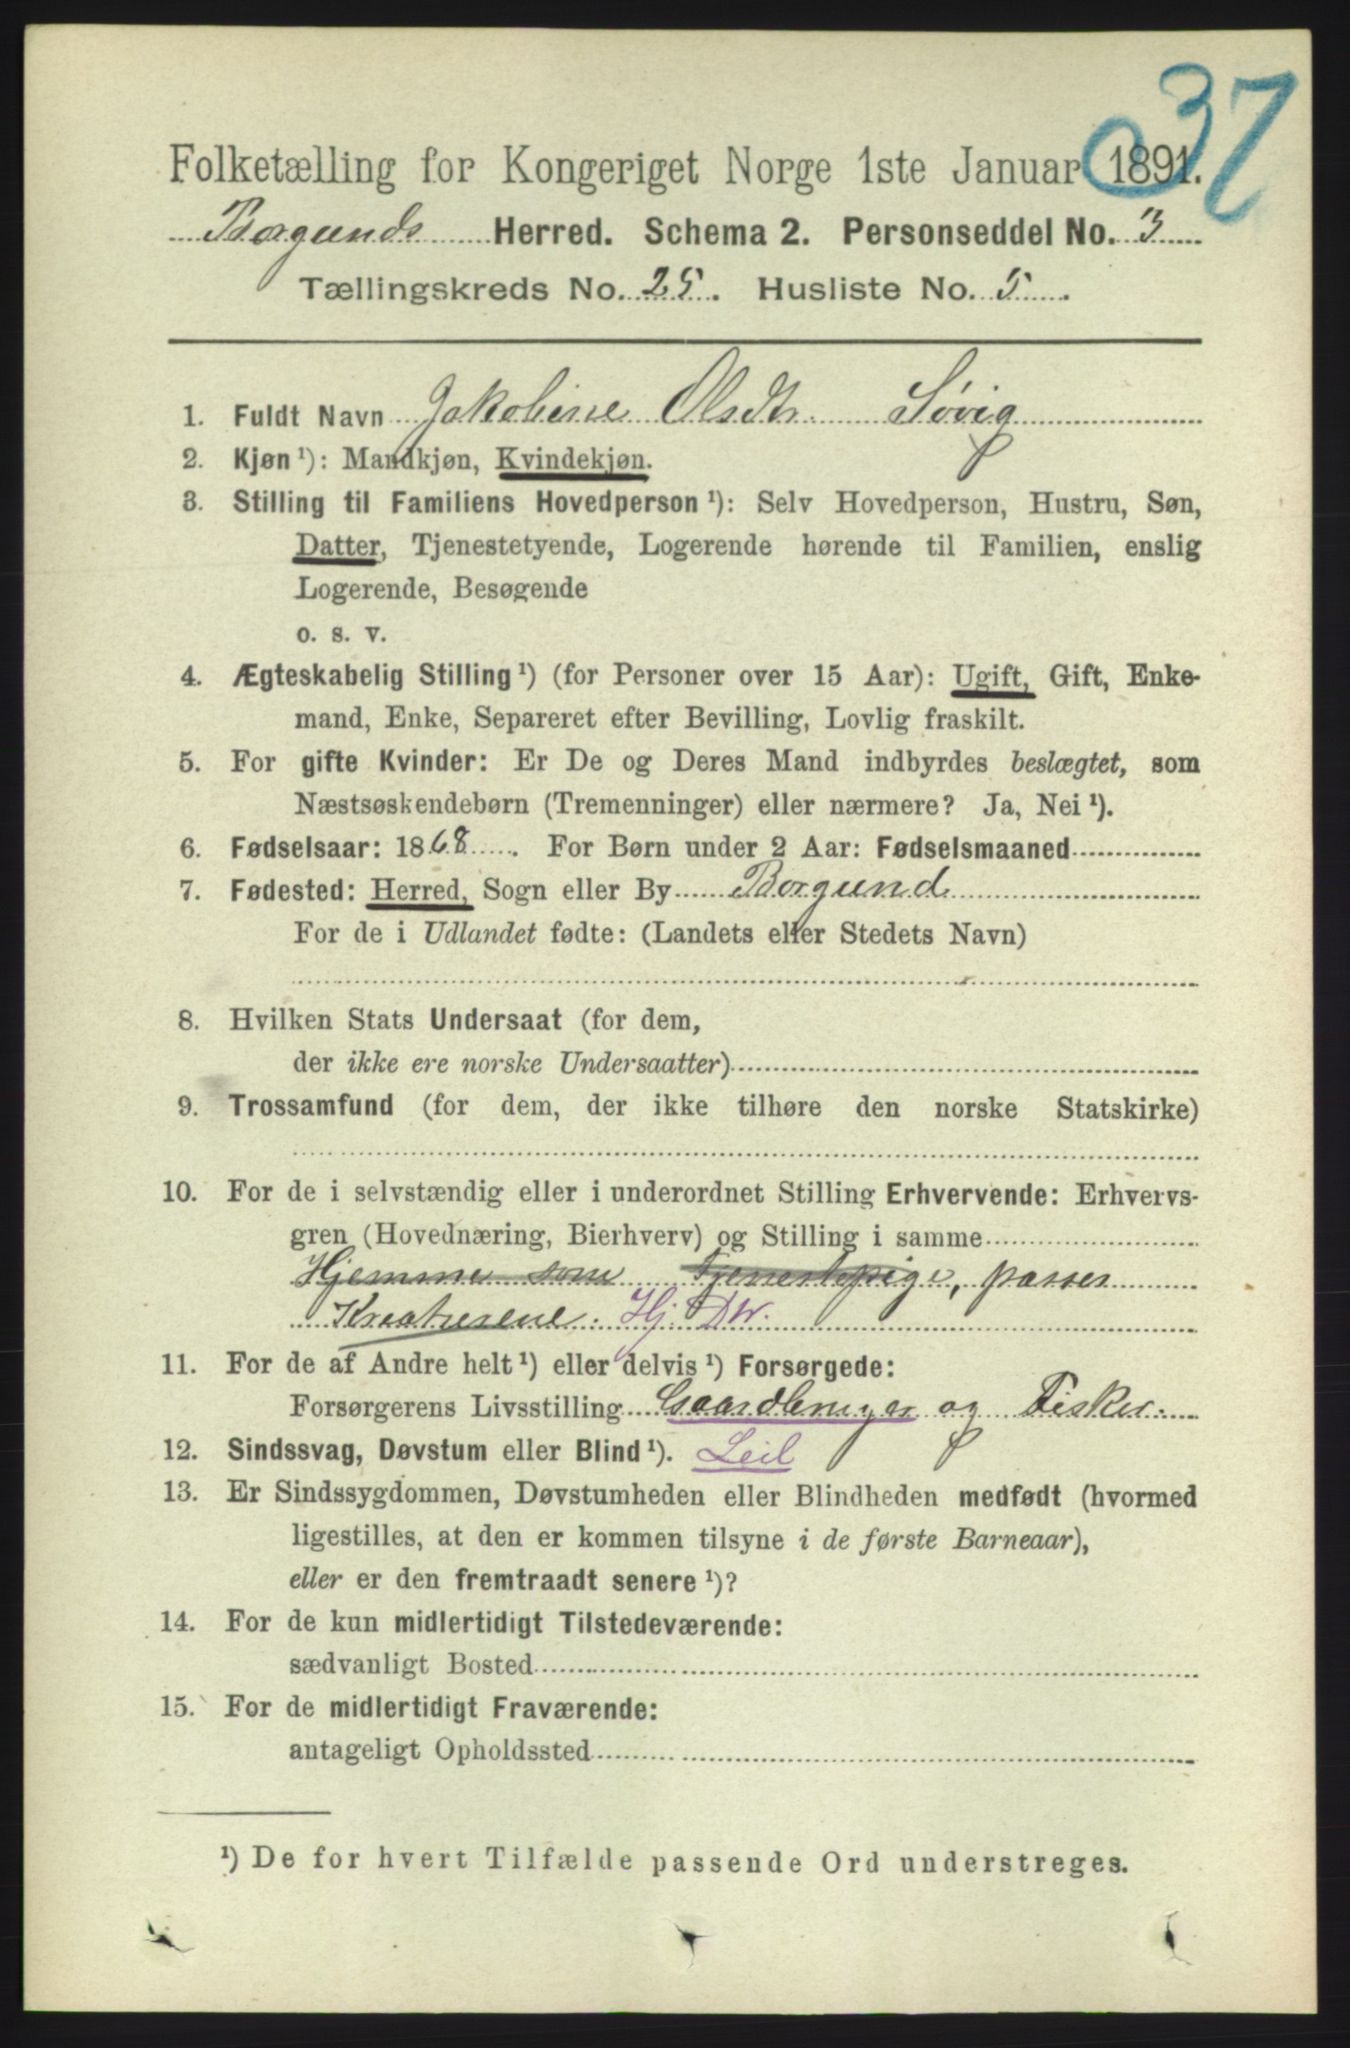 37
Folketælling for Kongeriget Norge 1ste Januar 1891.
Borgunds Herred. Schema 2. Personseddel No. 3
Tællingskreds No. 25. Husliste No. 5.
1. Fuldt Navn Jakobine Olsdtr. Søvig
2. Kjøn ¹): Mandkjøn, Kvindekjøn.
3. Stilling til Familiens Hovedperson ¹): Selv Hovedperson, Hustru, Søn,
Datter, Tjenestetyende, Logerende hørende til Familien, enslig
Logerende, Besøgende
o. s. v.
4. Ægteskabelig Stilling ¹) (for Personer over 15 Aar): Ugift, Gift, Enke-
mand, Enke, Separeret efter Bevilling, Lovlig fraskilt.
5. For gifte Kvinder: Er De og Deres Mand indbyrdes beslægtet, som
Næstsøskendebørn (Tremenninger) eller nærmere? Ja, Nei ¹).
6. Fødselsaar: 1868. For Børn under 2 Aar: Fødselsmaaned
7. Fødested: Herred, Sogn eller By Borgund
For de i Udlandet fødte: (Landets eller Stedets Navn)
8. Hvilken Stats Undersaat (for dem,
der ikke ere norske Undersaatter)
9. Trossamfund (for dem, der ikke tilhøre den norske Statskirke)
10. For de i selvstændig eller i underordnet Stilling Erhvervende: Erhvervs-
gren (Hovednæring, Bierhverv) og Stilling i samme
Hjemme som Tjenestepige, passer
Kreaturene. Hj. DW.
11. For de af Andre helt ¹) eller delvis ¹) Forsørgede:
Forsørgerens Livsstilling Gaardbruger og Fisker.
12. Sindssvag, Døvstum eller Blind ¹). Leil
13. Er Sindssygdommen, Døvstumheden eller Blindheden medfødt (hvormed
ligestilles, at den er kommen tilsyne i de første Barneaar),
eller er den fremtraadt senere ¹)?
14. For de kun midlertidigt Tilstedeværende:
sædvanligt Bosted
15. For de midlertidigt Fraværende:
antageligt Opholdssted
¹) De for hvert Tilfælde passende Ord understreges.